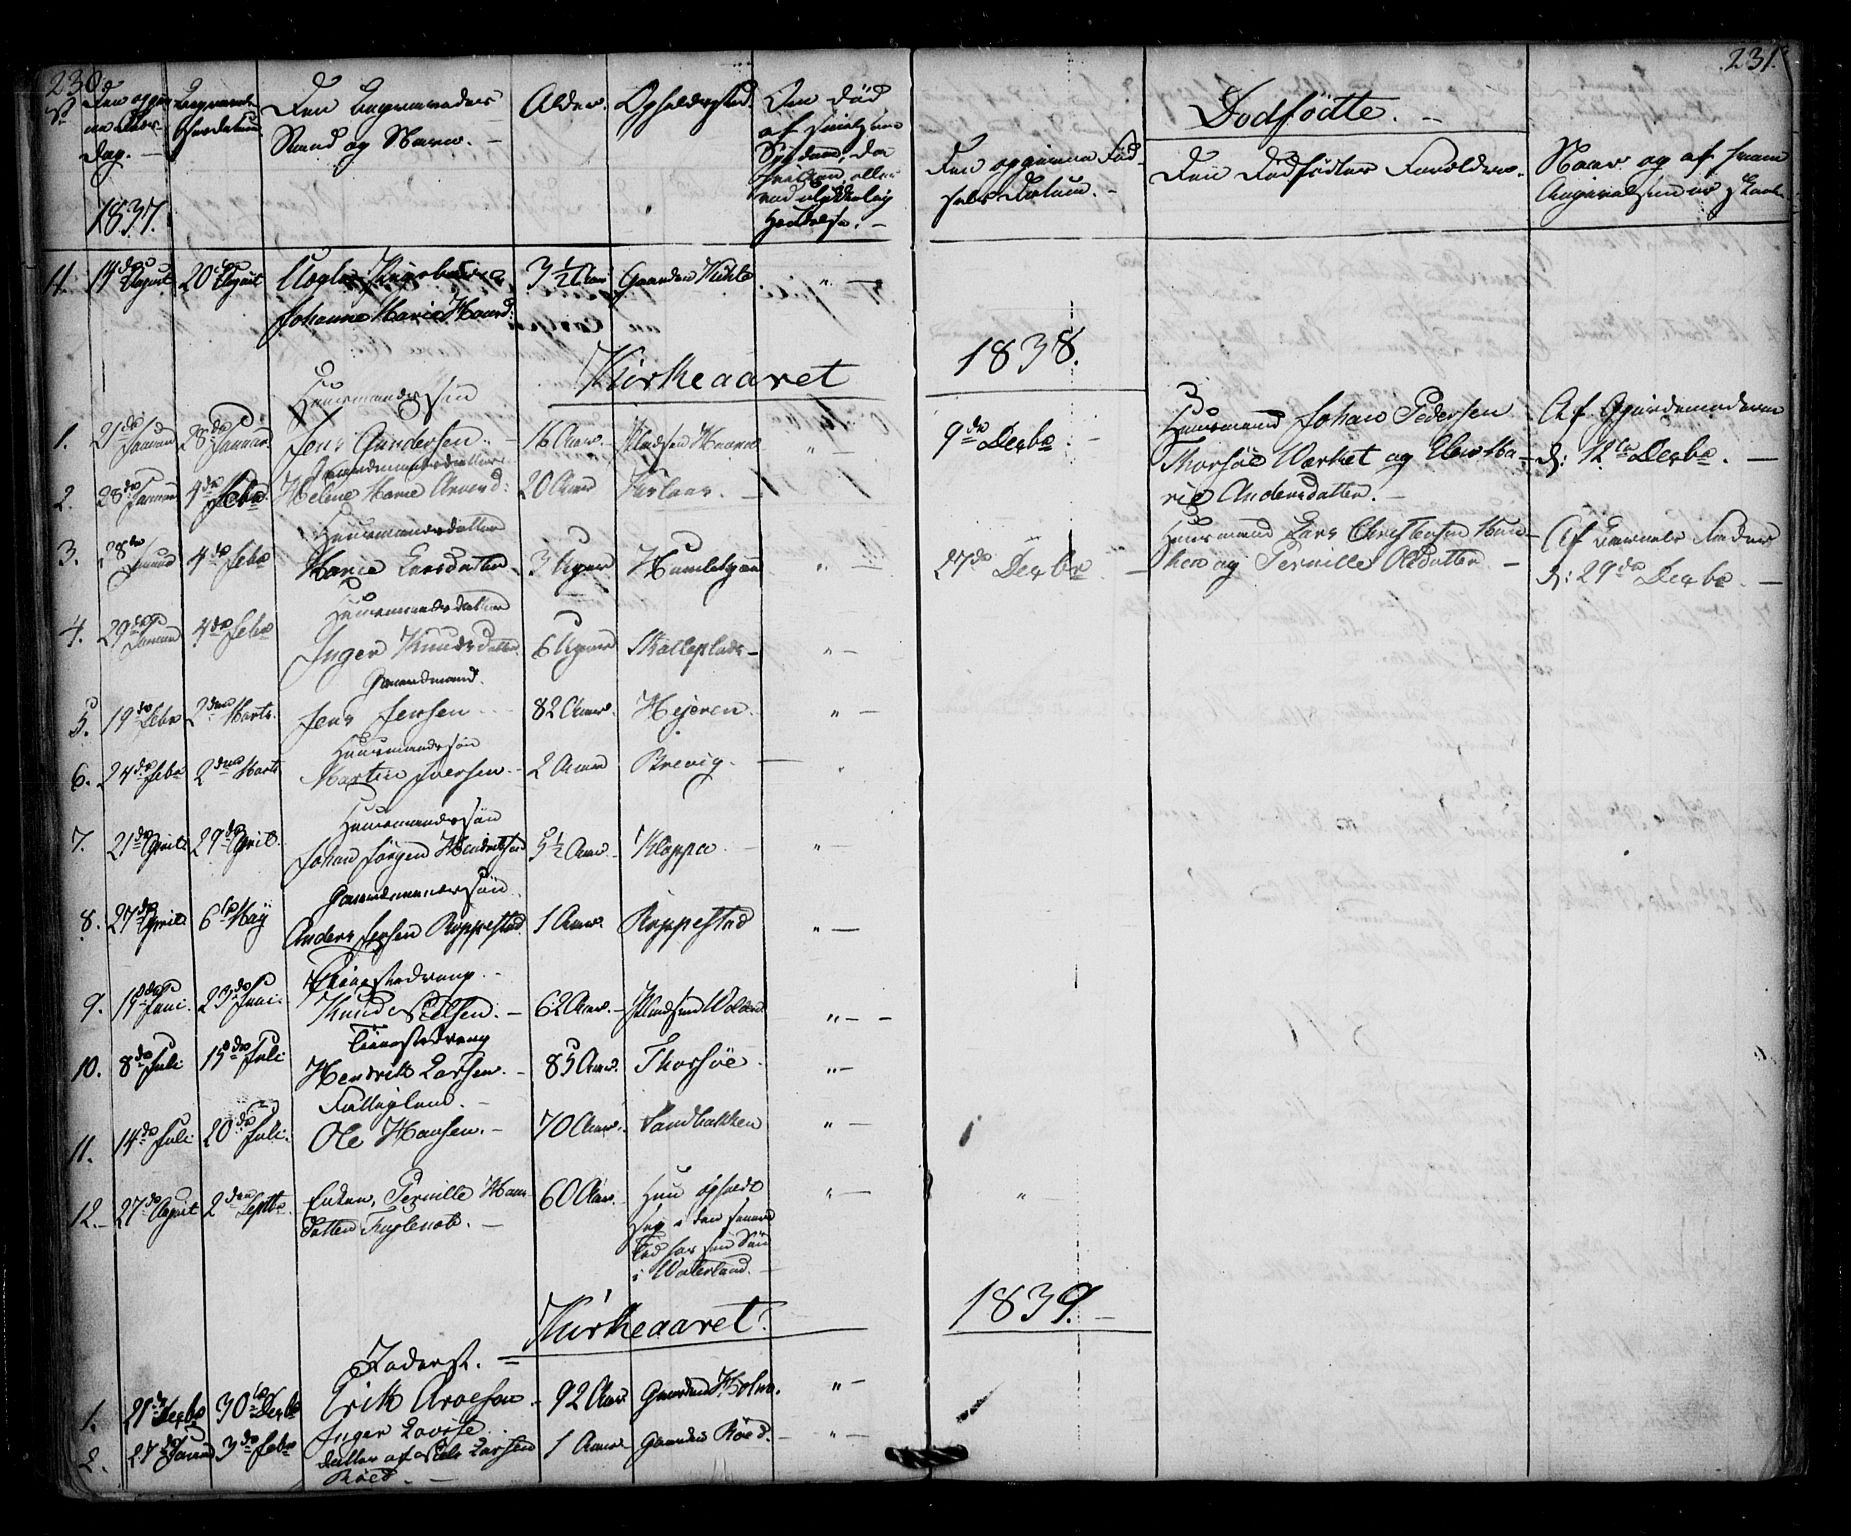 230
No
Den opgivne Døds-
Dag.
1837.
Begravel-
sesdatum
Den Begravedes
Stand og Navn.
Alder.
Opholdssted.
Om Død
af smitsom
Sygdom, da
hvilken, eller
ved ulykkelig
Hendelse.
11. 14de August 20de August
Johanne Marie
3 1/2 Aar Gaarden
Kirkeaaret
1. 21de Januar 28de Januar Huusmandssøn
Jens Andersen 16 Aar.
2. 28de Januar 4de Febr. Gaardmandsdatter
Helene Marie 20 Aar
3. 28de Januar 4de Febr Huusmandsdatter
Marie Larsdatter 3 Uger Humlekjær
4. 29de Januar 4de Febr Huusmandsdatter
Inger Knudsdatter 6 Uger Skatteplads
5. 19de Febr 2den Marts. Gaardmand.
Jens Jensen 82 Aar. Hejeren.
6. 24de Febr 2den Marts Huusmandssøn
Martin Iversen 2 Aar Brevig.
7. 21de April 29de April. Huusmandssøn
Johan Jørgen Hendriksen 5 1/2 Aar Kloppa
8. 27de April 6te Maÿ Gaardmandssøn
Anders Jensen Roppestad 1 Aar. Roppestad
9. 15de Juni. 23de Juni. Tienestedreng.
Knud Nielsen. 62 Aar.
10. 8de Juli 15de Juli Tienestedreng
Hendrik Larsen. 85 Aar. Thorsøe
11. 14de Juli 20de Juli. Fattiglem.
Ole Hansen. 70 Aar. Sandbakken
12. 27de August 2den Septbr. Enken, Pernille Hans-
datter Fuglevik. 60 Aar. Hun opholdt
sig i den senere
Tid hos sin Søn
i Waterland.
Kirkeaaret.
1. 21de Decbr 30te Decbr Føderst.
Erik Arvesen 92 Aar Gaarden Holm.
2. 27de Januar 3de Febr Inger Lovise
datter af Niels Larsen
Röed. 1 Aar Gaarden Röed.
231.
Dödfödte.
Den opgivne Fød-
sels Datum.
Den Dödfödtes Forældre.
Naar og af hvem
Angivelsen er skeet
1838.
9de Decbr
Huusmand Johan Pedersen
Thorsöe Værket og Else Ma-
rie Andersdatter.
Af Gjordemoderen
d: 12te Decbr.
27de Decbr
Huusmand Lars Christensen
og Pernille Olsdatter
Af Barnets Fader
d: 29de Decbr
1839.